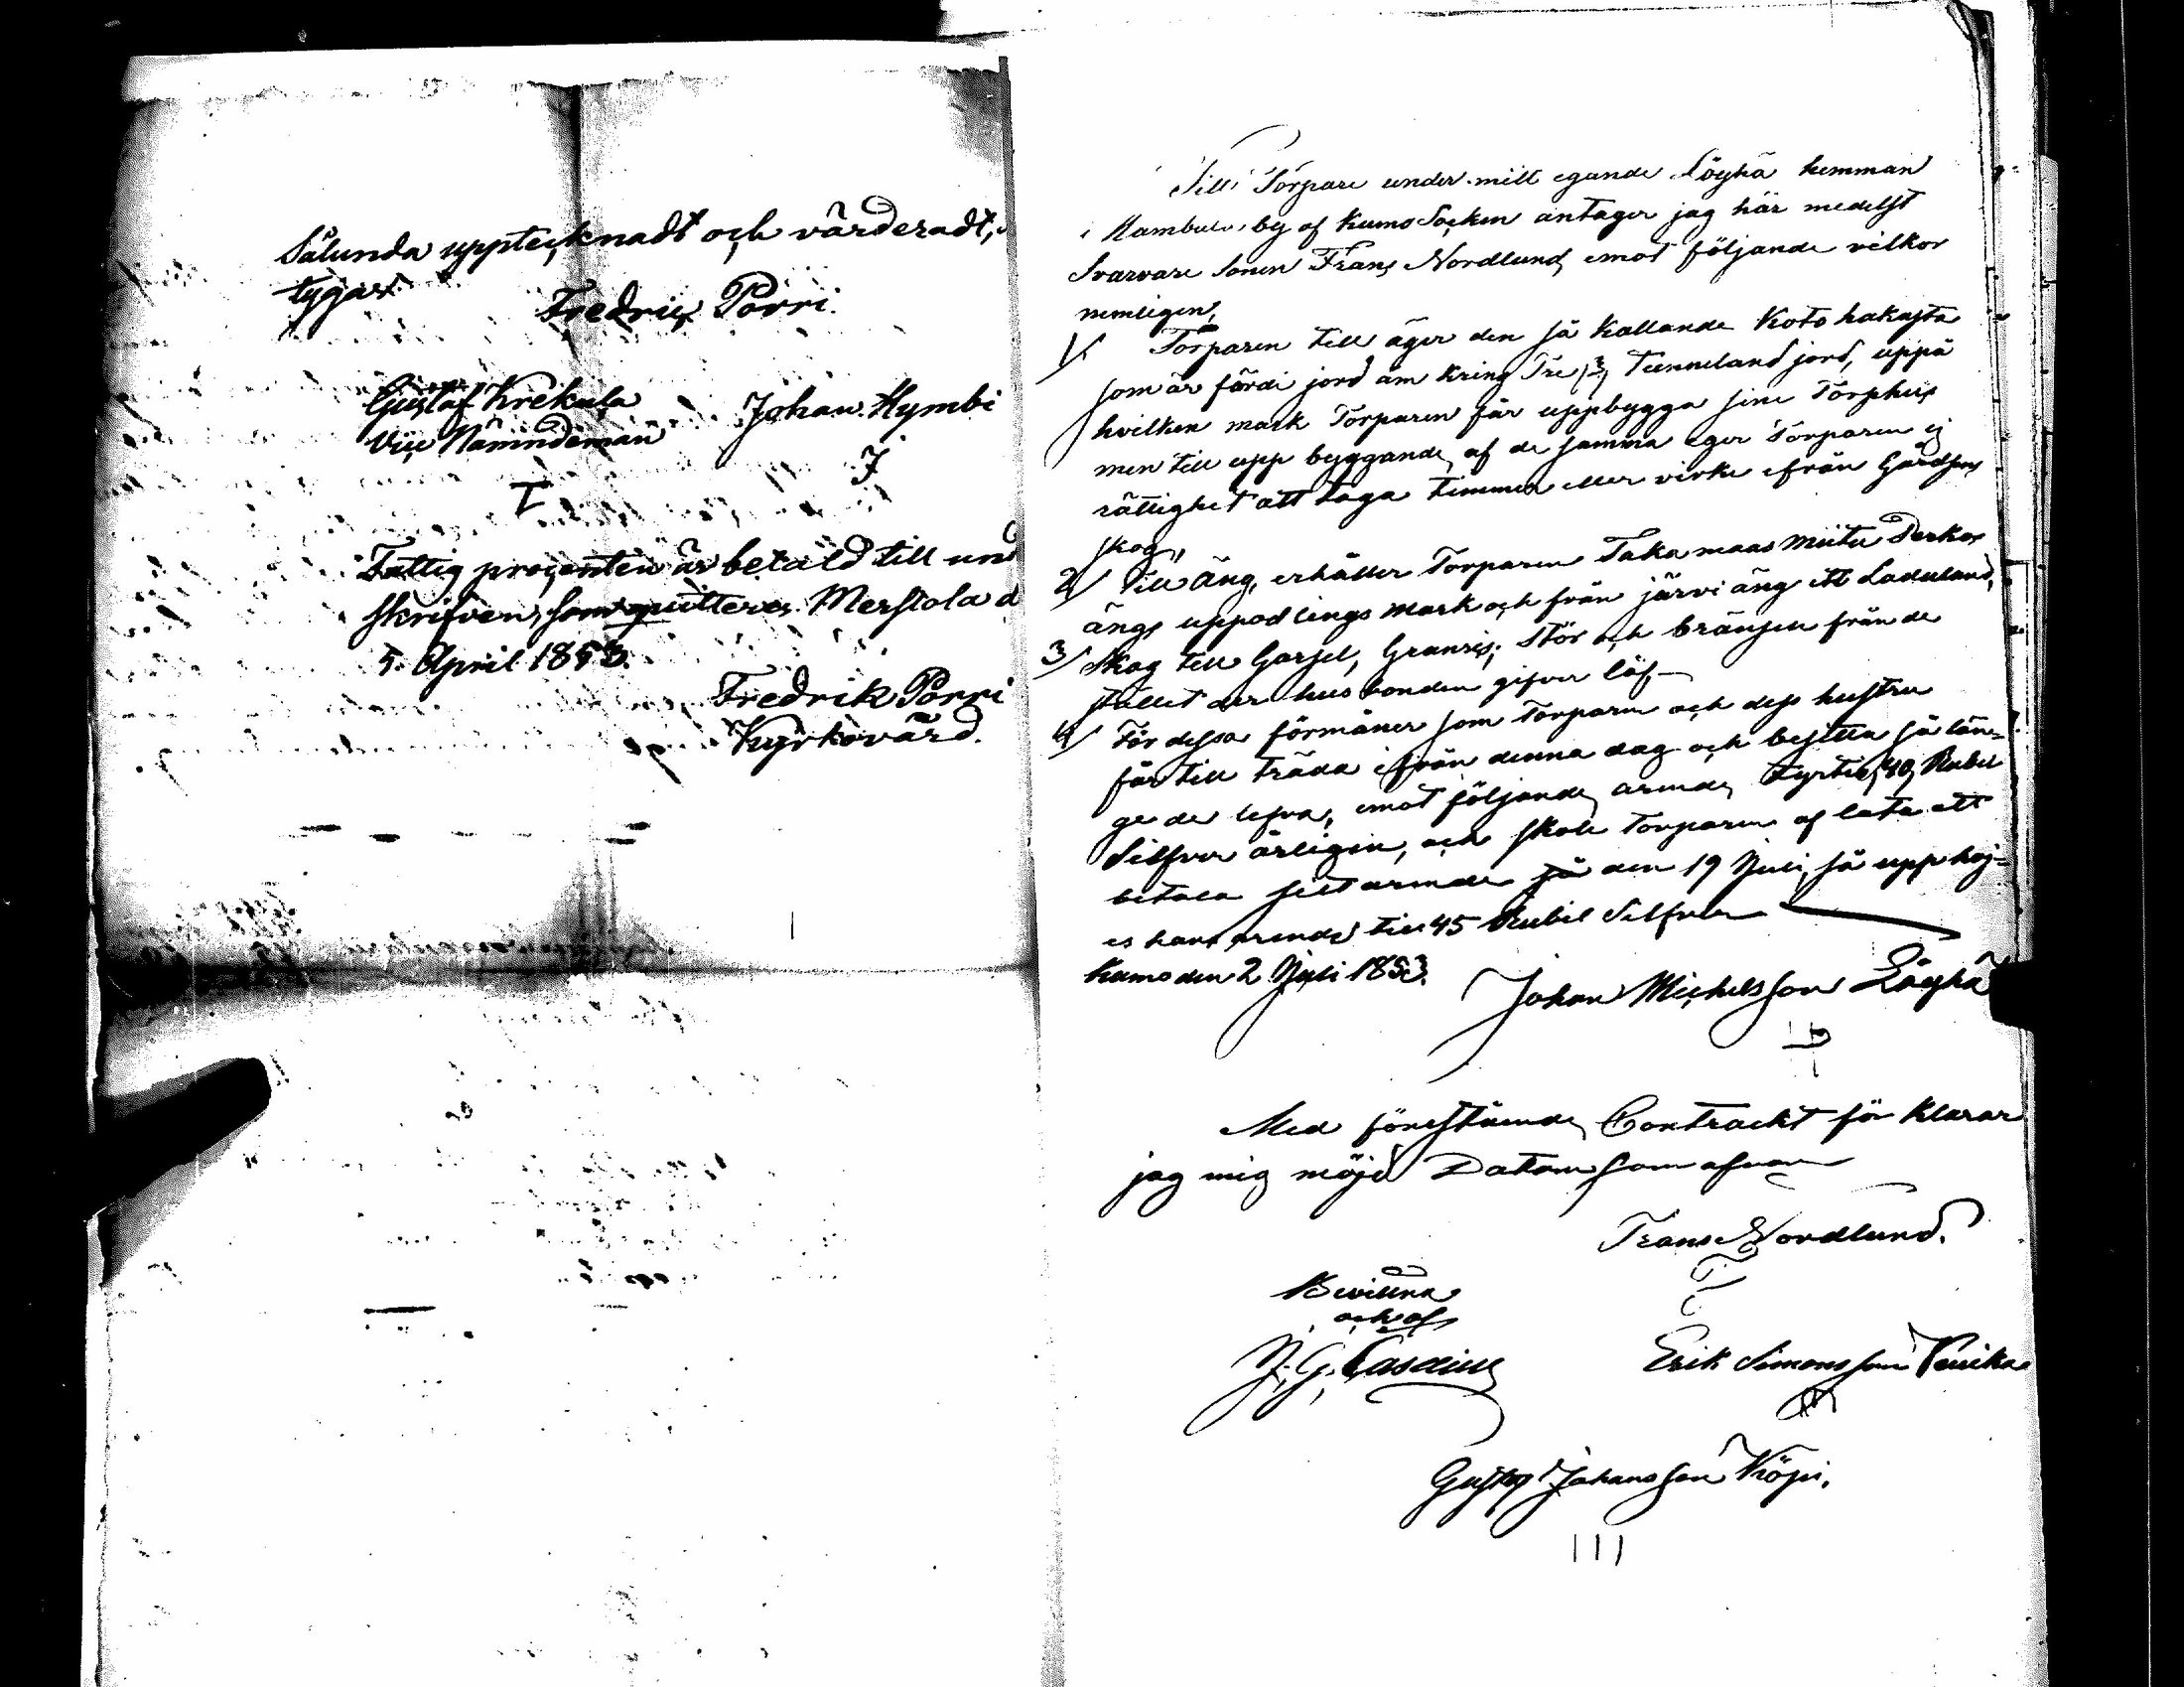 Sålunda uppteknadt och värderadt,
tygar
Fredric Porri.
Gustaf Krekula
Vice Nämndeman
Johan Hymbi
Fattig procenten är betald till und
skrifven, som quitteras Merstola d
5. April 1853.
Fredrik Porri
Kyrkovärd.
Till Torpare under mitt egande Löyhä hemman
i by af Kumo Socken antager jag här medelst
Svarvare Sonen Frans Nordlund, emot följande vilkor
nemligen,
1/ Torparen till äger den så kallande Kotohakasta
som är färdi jord om kring Tre, 3, Tunneland jord, uppå
hvilken mark Torparen får uppbygga sine Torphus
men till upp byggande af de samma eger Torparen ej
rättighet att taga timmer eller virke ifrån Gårdsens
skog,
2/ Till Äng, erhåller Torparen Takamaas
ängs uppodlings mark och från järvi äng ett Laduland,
3/ Skog till Garsel, Granris, Stör och bränsen från de
stället der husbonden gifver löf
4/ För dessa förmåner som Torparen och dess hustru
får till träda ifrån denna dag och besitta så län=
ge de lefva, emot följande arende, Fyrtio, 40, Rubel
Silfver årligen, och skole Torparen af låta att
betala sitt arende på den 19 Juli, så upphöj=
es hans arende till 45 Rubel Silfver
Kumo den 2 Juli 1853.
Johan Michelsson Löyhä
Med förestående Contrackt för klarar
jag mig nöjd Datum som ofvan
Frans Nordlund.
Bevittna
och af
Erik Simonsson
Gustaf Johansson Köpi.